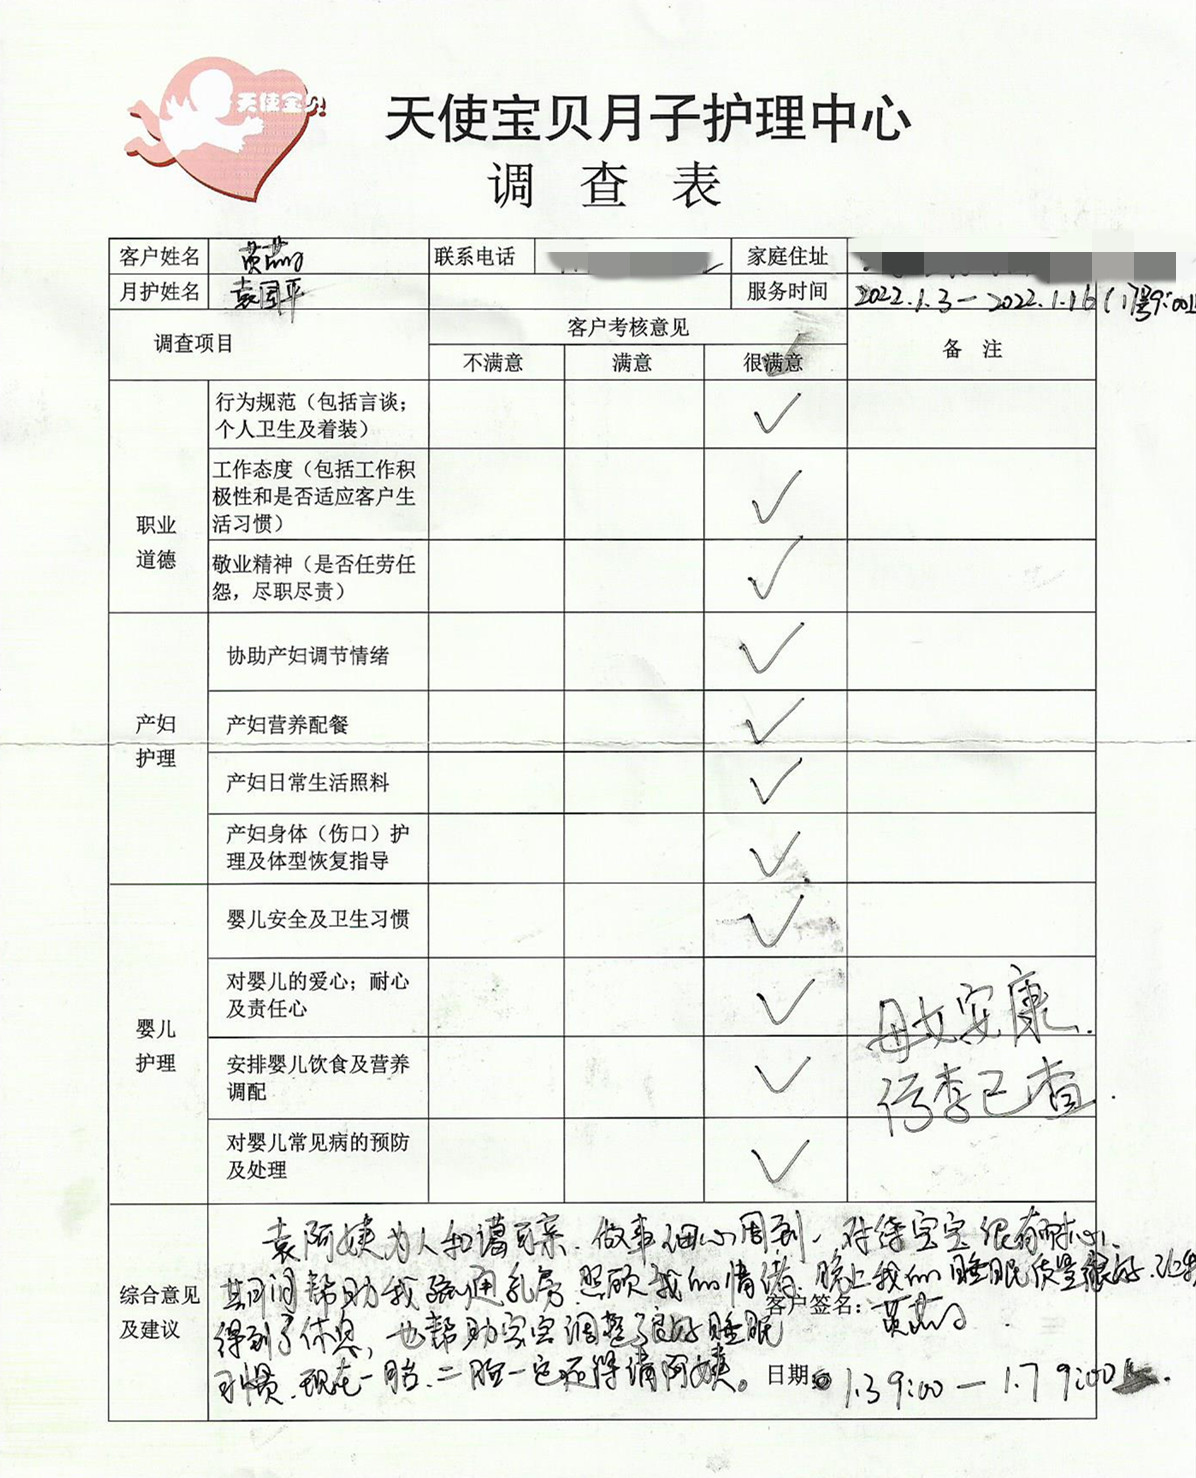 天使宝贝
天使宝贝月子护理中心
调 查 表
客户姓名 黄 联系电话 家庭住址
月护姓名 袁国平 服务时间 2022.1.3 — 2022.1.16 (17号9:00
调查项目 客户考核意见 备 注
不满意 满意 很满意
职业
道德
行为规范（包括言谈；
个人卫生及着装）
✓
工作态度（包括工作积
极性和是否适应客户生
活习惯）
✓
敬业精神（是否任劳任
怨，尽职尽责）
✓
产妇
护理
协助产妇调节情绪 ✓
产妇营养配餐 ✓
产妇日常生活照料 ✓
产妇身体（伤口）护
理及体型恢复指导
✓
婴儿
护理
婴儿安全及卫生习惯 ✓
对婴儿的爱心；耐心
及责任心
✓
安排婴儿饮食及营养
调配
✓
对婴儿常见病的预防
及处理
✓
母女安康.
行李已查.
综合意见
及建议
袁阿姨为人和蔼可亲、做事细心周到、对待宝宝很有耐心.
其间帮助我疏通乳房、照顾我的情绪、晚上我的睡眠质量很好、让我
得到了休息，也帮助宝宝调整了良好睡眠
习惯、现在一胎、二胎一定还得请阿姨。
客户签名：黄
日期： 1.3 9:00 — 1.7 9:00